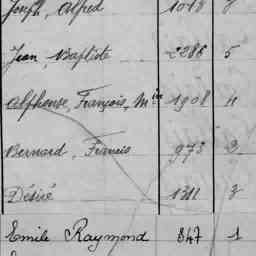 Joseph, Alfred 1018
Jean, Baptiste 2286 5
Alphonse, François, Mie 1908 4
Bernard, Francis 973 3
Désiré 1311 3
Emile Raymond 347 1